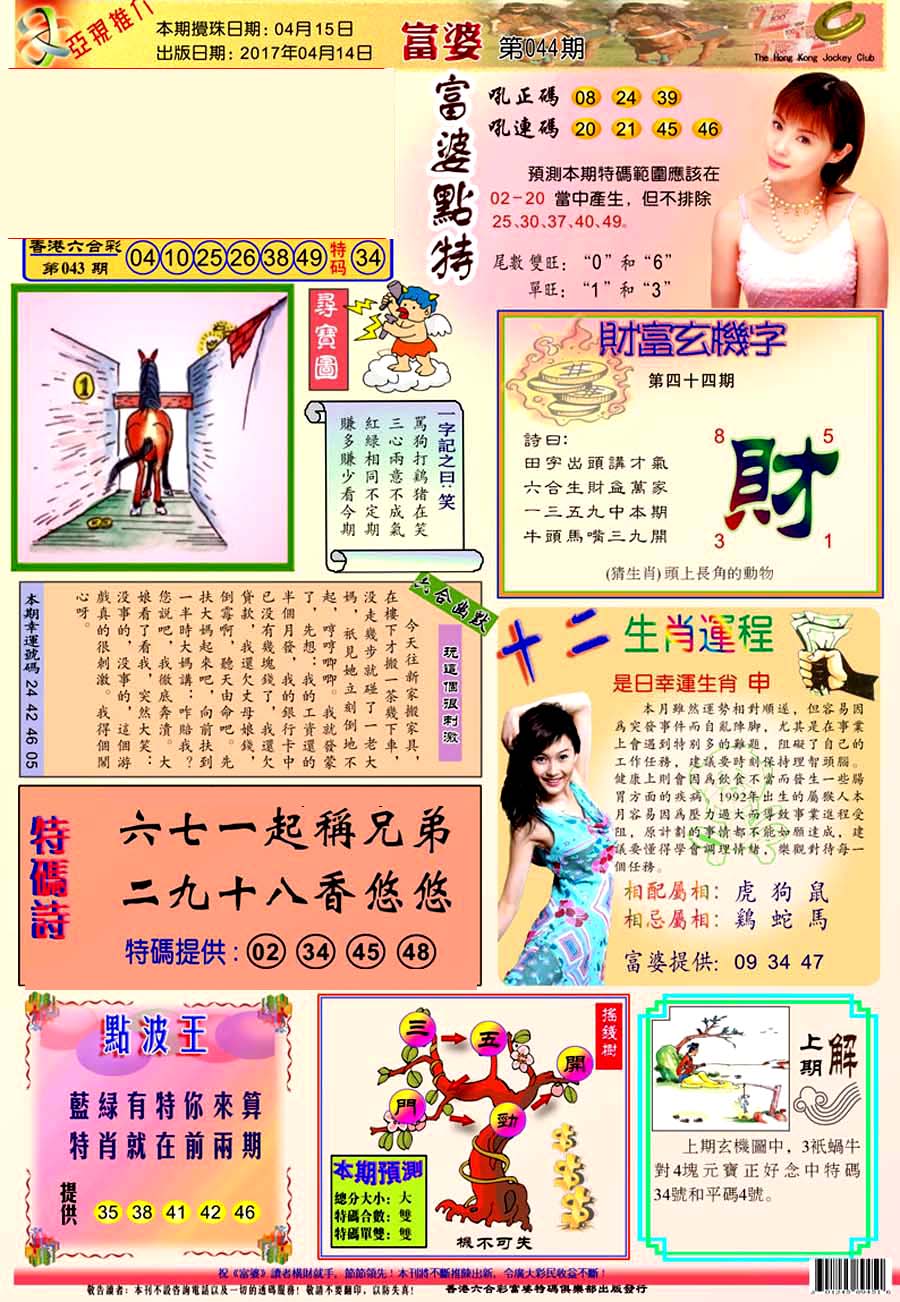 亞視推介
本期攪珠日期: 04月15日
出版日期: 2017年04月14日
富婆 第044期
The Hong Kong Jockey Club
香港六合彩
第043 期
04 10 25 26 38 49 特码 34
富婆點特
吼正碼 08 24 39
吼連碼 20 21 45 46
預測本期特碼範圍應該在
02－20 當中產生，但不排除
25、30、37、40、49。
尾數 雙旺：“0”和“6”
單旺：“1”和“3”
尋寶圖
1
一字記之曰:笑
罵狗打鷄猪在笑
三心兩意不成氣
紅緑相同不定期
賺多賺少看今期
財富玄機字
第四十四期
詩曰:
田字出頭講才氣
六合生財益萬家
一三五九中本期
牛頭馬嘴三九開
8 5
財
3 1
(猜生肖) 頭上長角的動物
六合幽默
玩這個很刺激
今天往新家搬家具，
在樓下才搬一茶幾下車，
没走幾步就碰了一老大
媽，祇見她立刻倒地不
起，哼哼唧唧。我就發蒙
了，先想：我的工資還的
半個月發，我的銀行卡中
已没有幾塊錢了，我還欠
貸款，我還欠丈母娘錢，
倒霉啊，聽天由命吧。先
扶大媽起來吧，向前扶到
一半時大媽講：咋賠我？
您説吧，我徹底奔潰。大
娘看了看我，突然大笑：
没事的，没事的，這個游
戲真的很刺激。我得個關
心呀。
本期幸運號碼 24 42 46 05
十二生肖運程
是日幸運生肖 申
本月雖然運勢相對順遂，但容易因
為突發事件而自亂陣脚，尤其是在事業
上會遇到特别多的難題，阻礙了自己的
工作任務，建議要時刻保持理智頭腦。
健康上則會因爲飲食不當而發生一些腸
胃方面的疾病，1992年出生的屬猴人本
月容易因爲壓力過大而導致事業進程受
阻，原計劃的事情都不能如願達成，建
議要懂得學會調理情緒，樂觀對待每一
個任務。
相配屬相： 虎 狗 鼠
相忌屬相： 鷄 蛇 馬
富婆提供: 09 34 47
特碼詩
六七一起稱兄弟
二九十八香悠悠
特碼提供: 02 34 45 48
點波王
藍緑有特你來算
特肖就在前兩期
提供 35 38 41 42 46
搖錢樹
三 五 開
門 勁
本期預測
總分大小: 大
特碼合數: 雙
特碼單雙: 雙
機不可失
上期解
上期玄機圖中，3衹蝸牛
對4塊元寶正好念中特碼
34號和平碼4號。
祝《富婆》讀者横財就手，節節領先！本刊將不斷推陳出新，令廣大彩民收益不斷！
敬告讀者：本刊不設咨詢電話以及一切的透碼服務！敬請不要翻印，以防失真！
香港六合彩富婆特碼俱樂部出版發行